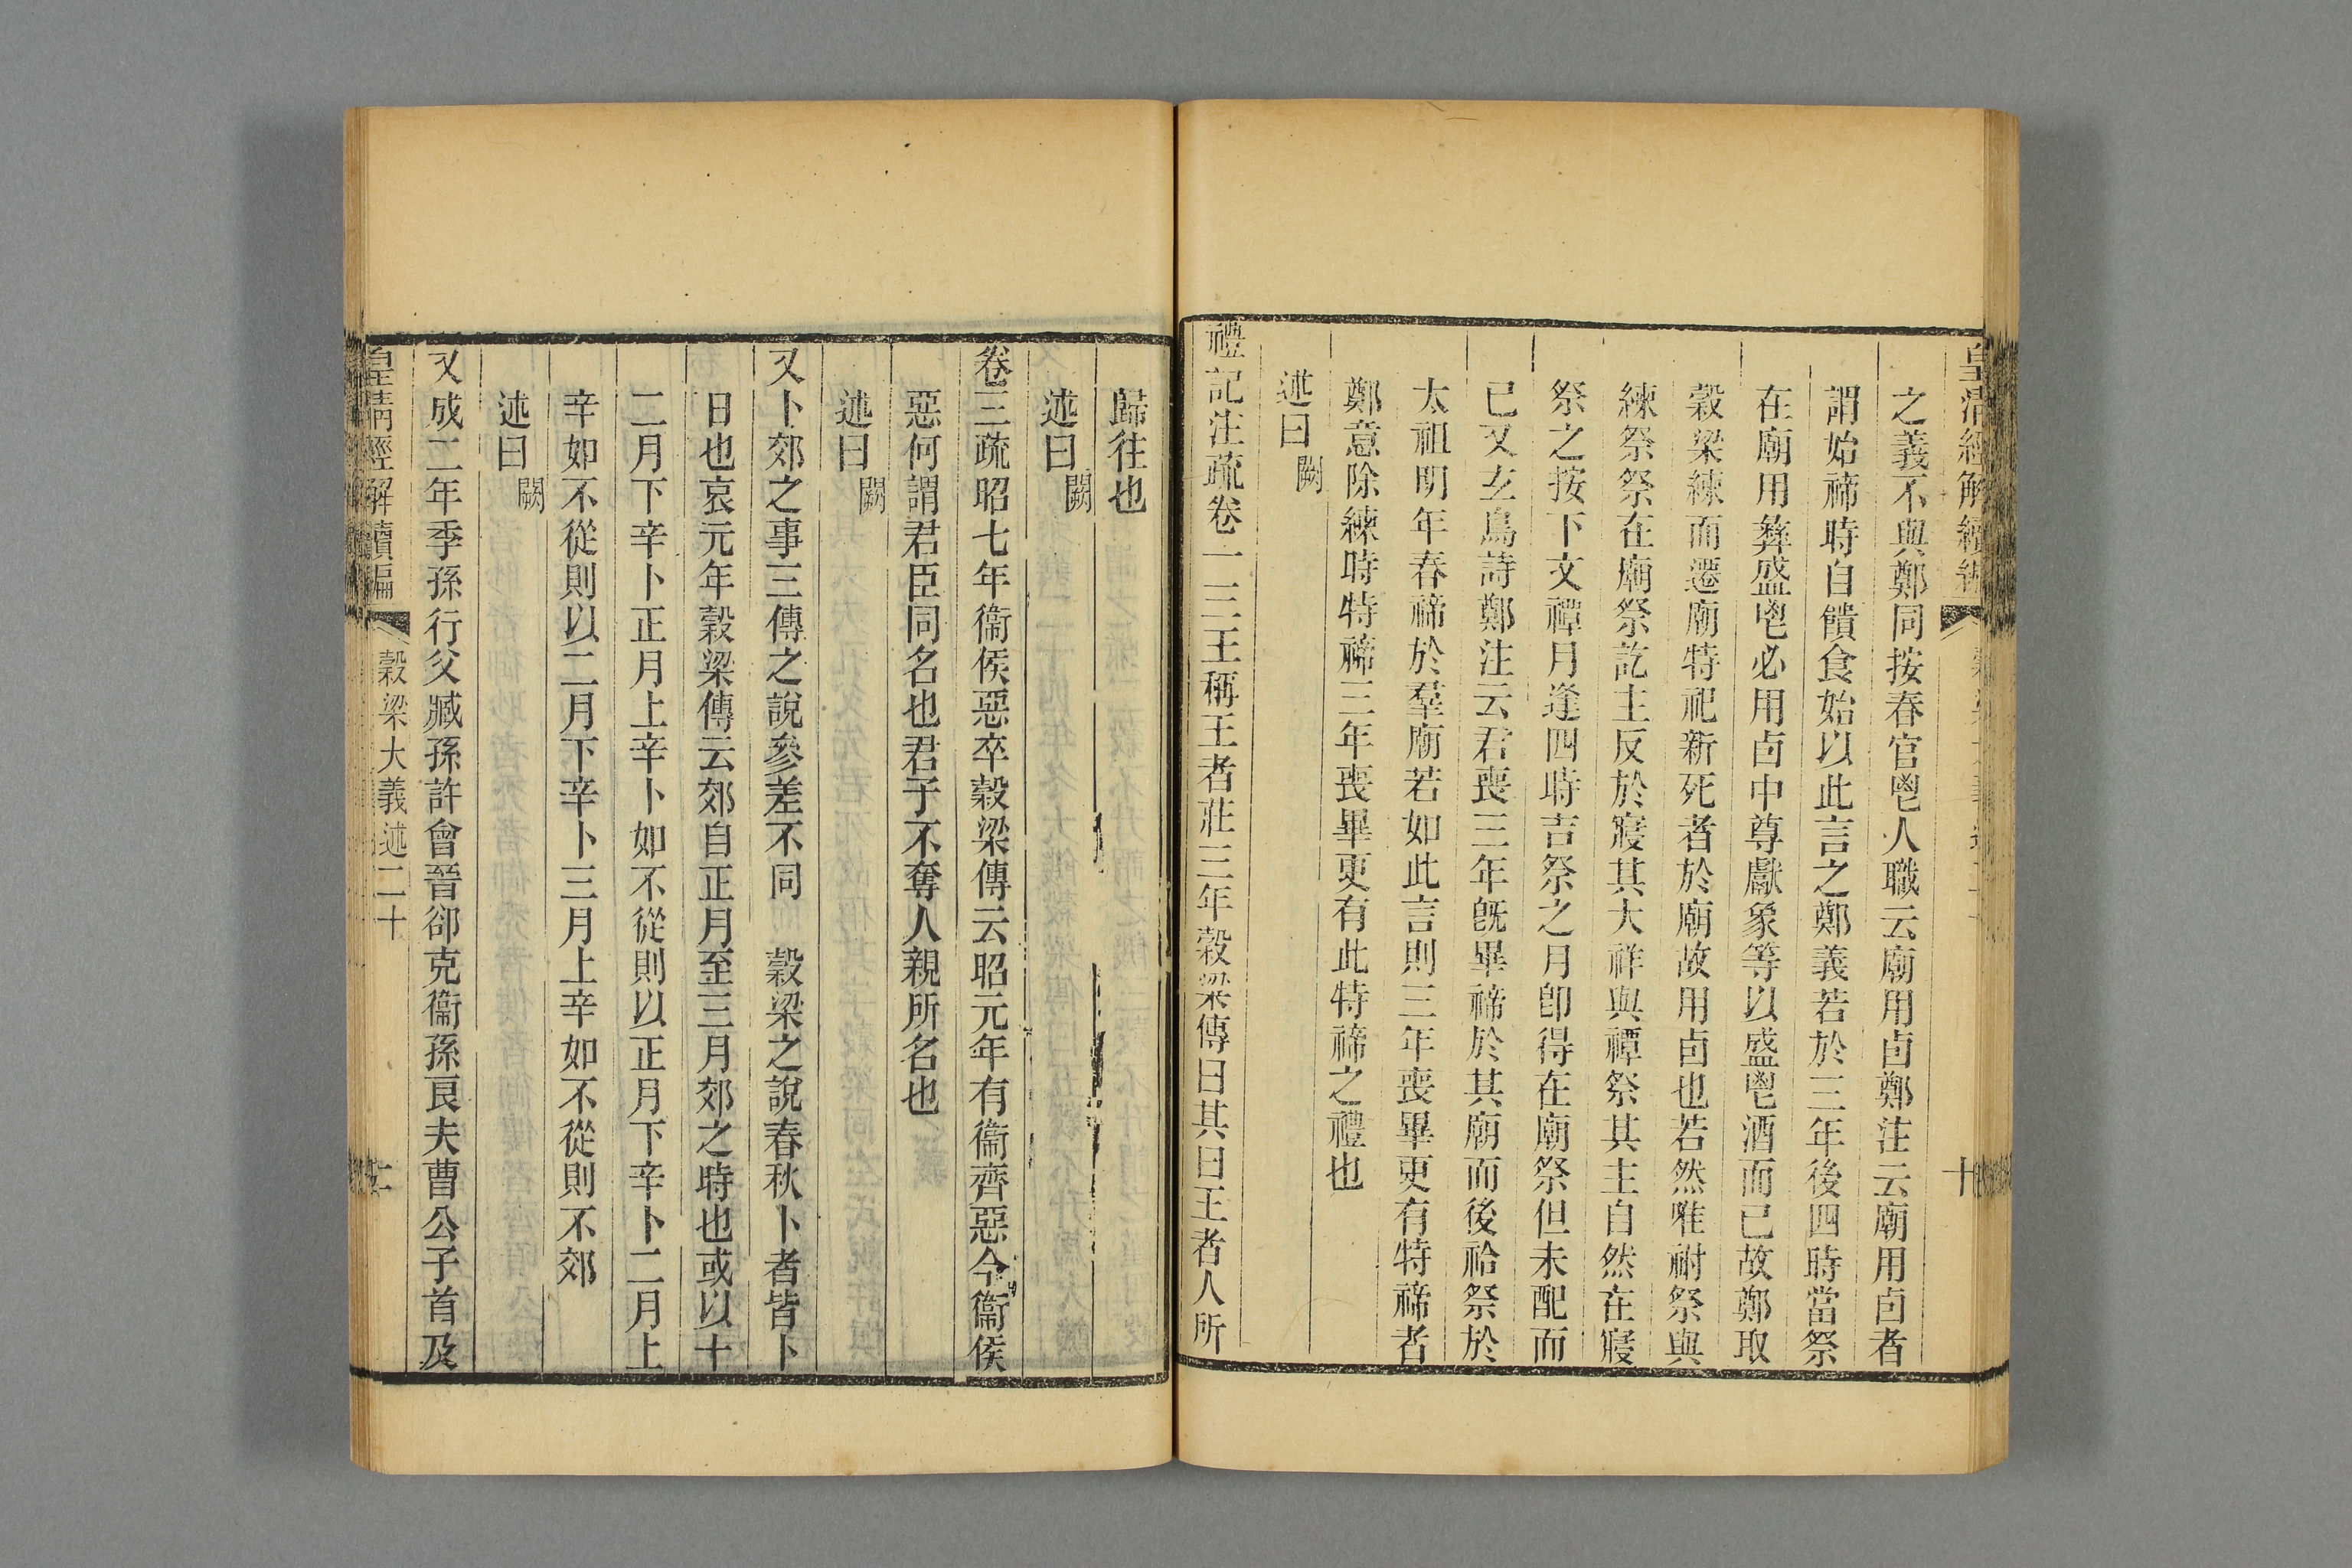 皇清經解續編
十
之義不與鄭同按春官鬯人職云廟用卣鄭注云廟用卣者
謂始禘時自饋食始以此言之鄭義若於三年後四時當祭
在廟用彝盛鬯必用卣中尊獻象等以盛鬯酒而已故鄭取
穀梁練而遷廟特祀新死者於廟故用卣也若然唯祔祭與
練祭祭在廟祭訖主反於寢其大祥與禫祭其主自然在寢
祭之按下文禫月逢四時吉祭之月卽得在廟祭但未配而
已又玄鳥詩鄭注云君喪三年旣畢禘於其廟而後祫祭於
太祖明年春禘於羣廟若如此言則三年喪畢更有特禘者
鄭意除練時特禘三年喪畢更有此特禘之禮也
述曰闕
禮記注疏卷一三王稱王者莊三年穀梁傳曰其曰王者人所
歸往也
述曰闕
卷三疏昭七年衞侯惡卒穀梁傳云昭元年有衞齊惡今衞侯
惡何謂君臣同名也君子不奪人親所名也
述曰闕
又卜郊之事三傳之說參差不同 穀梁之說春秋卜者皆卜
日也哀元年穀梁傳云郊自正月至三月郊之時也或以十
二月下辛卜正月上辛卜如不從則以正月下辛卜二月上
辛如不從則以二月下辛卜三月上辛如不從則不郊
述曰闕
又成二年季孫行父臧孫許會晉郤克衞孫良夫曹公子首及
皇清經解續編 穀梁大義述二十